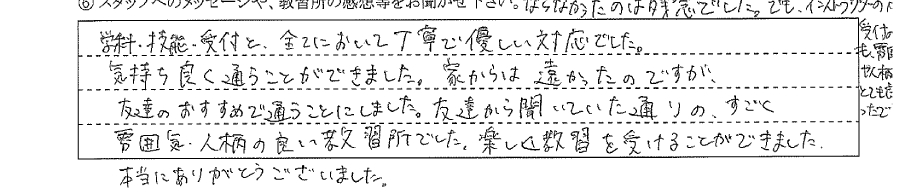 ⑥ スタッフへのメッセージや、教習所の感想等をお聞かせ下さい。ならなかったのは残念でした。でも、インストラクターの
学科・技能・受付と、全てにおいて丁寧で優しい対応でした。
気持ち良く通うことができました。家からは遠かったのですが、
友達のおすすめで通うことにしました。友達から聞いていた通りの、すごく
雰囲気・人柄の良い教習所でした。楽しく教習を受けることができました。
本当にありがとうございました。
受付
も、雰囲
や人柄
とても
ったで